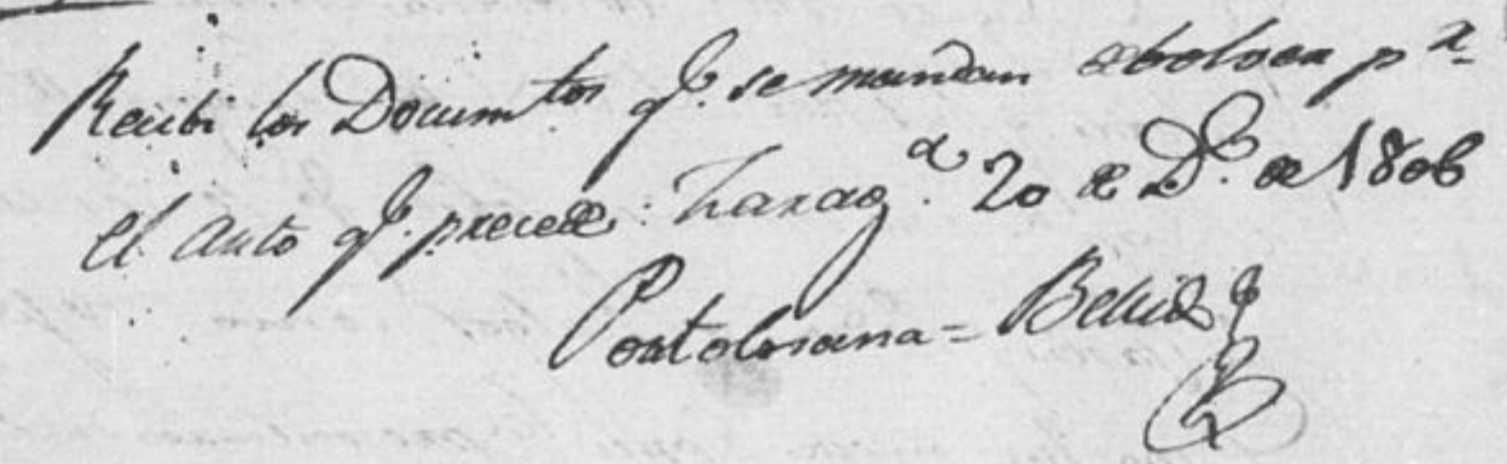 Recibi los Docum.tos q.e se mandan debolver p.r
el auto q.e precede: Zarag.a 20 de D.e de 1806
Por tolosana = Bellido